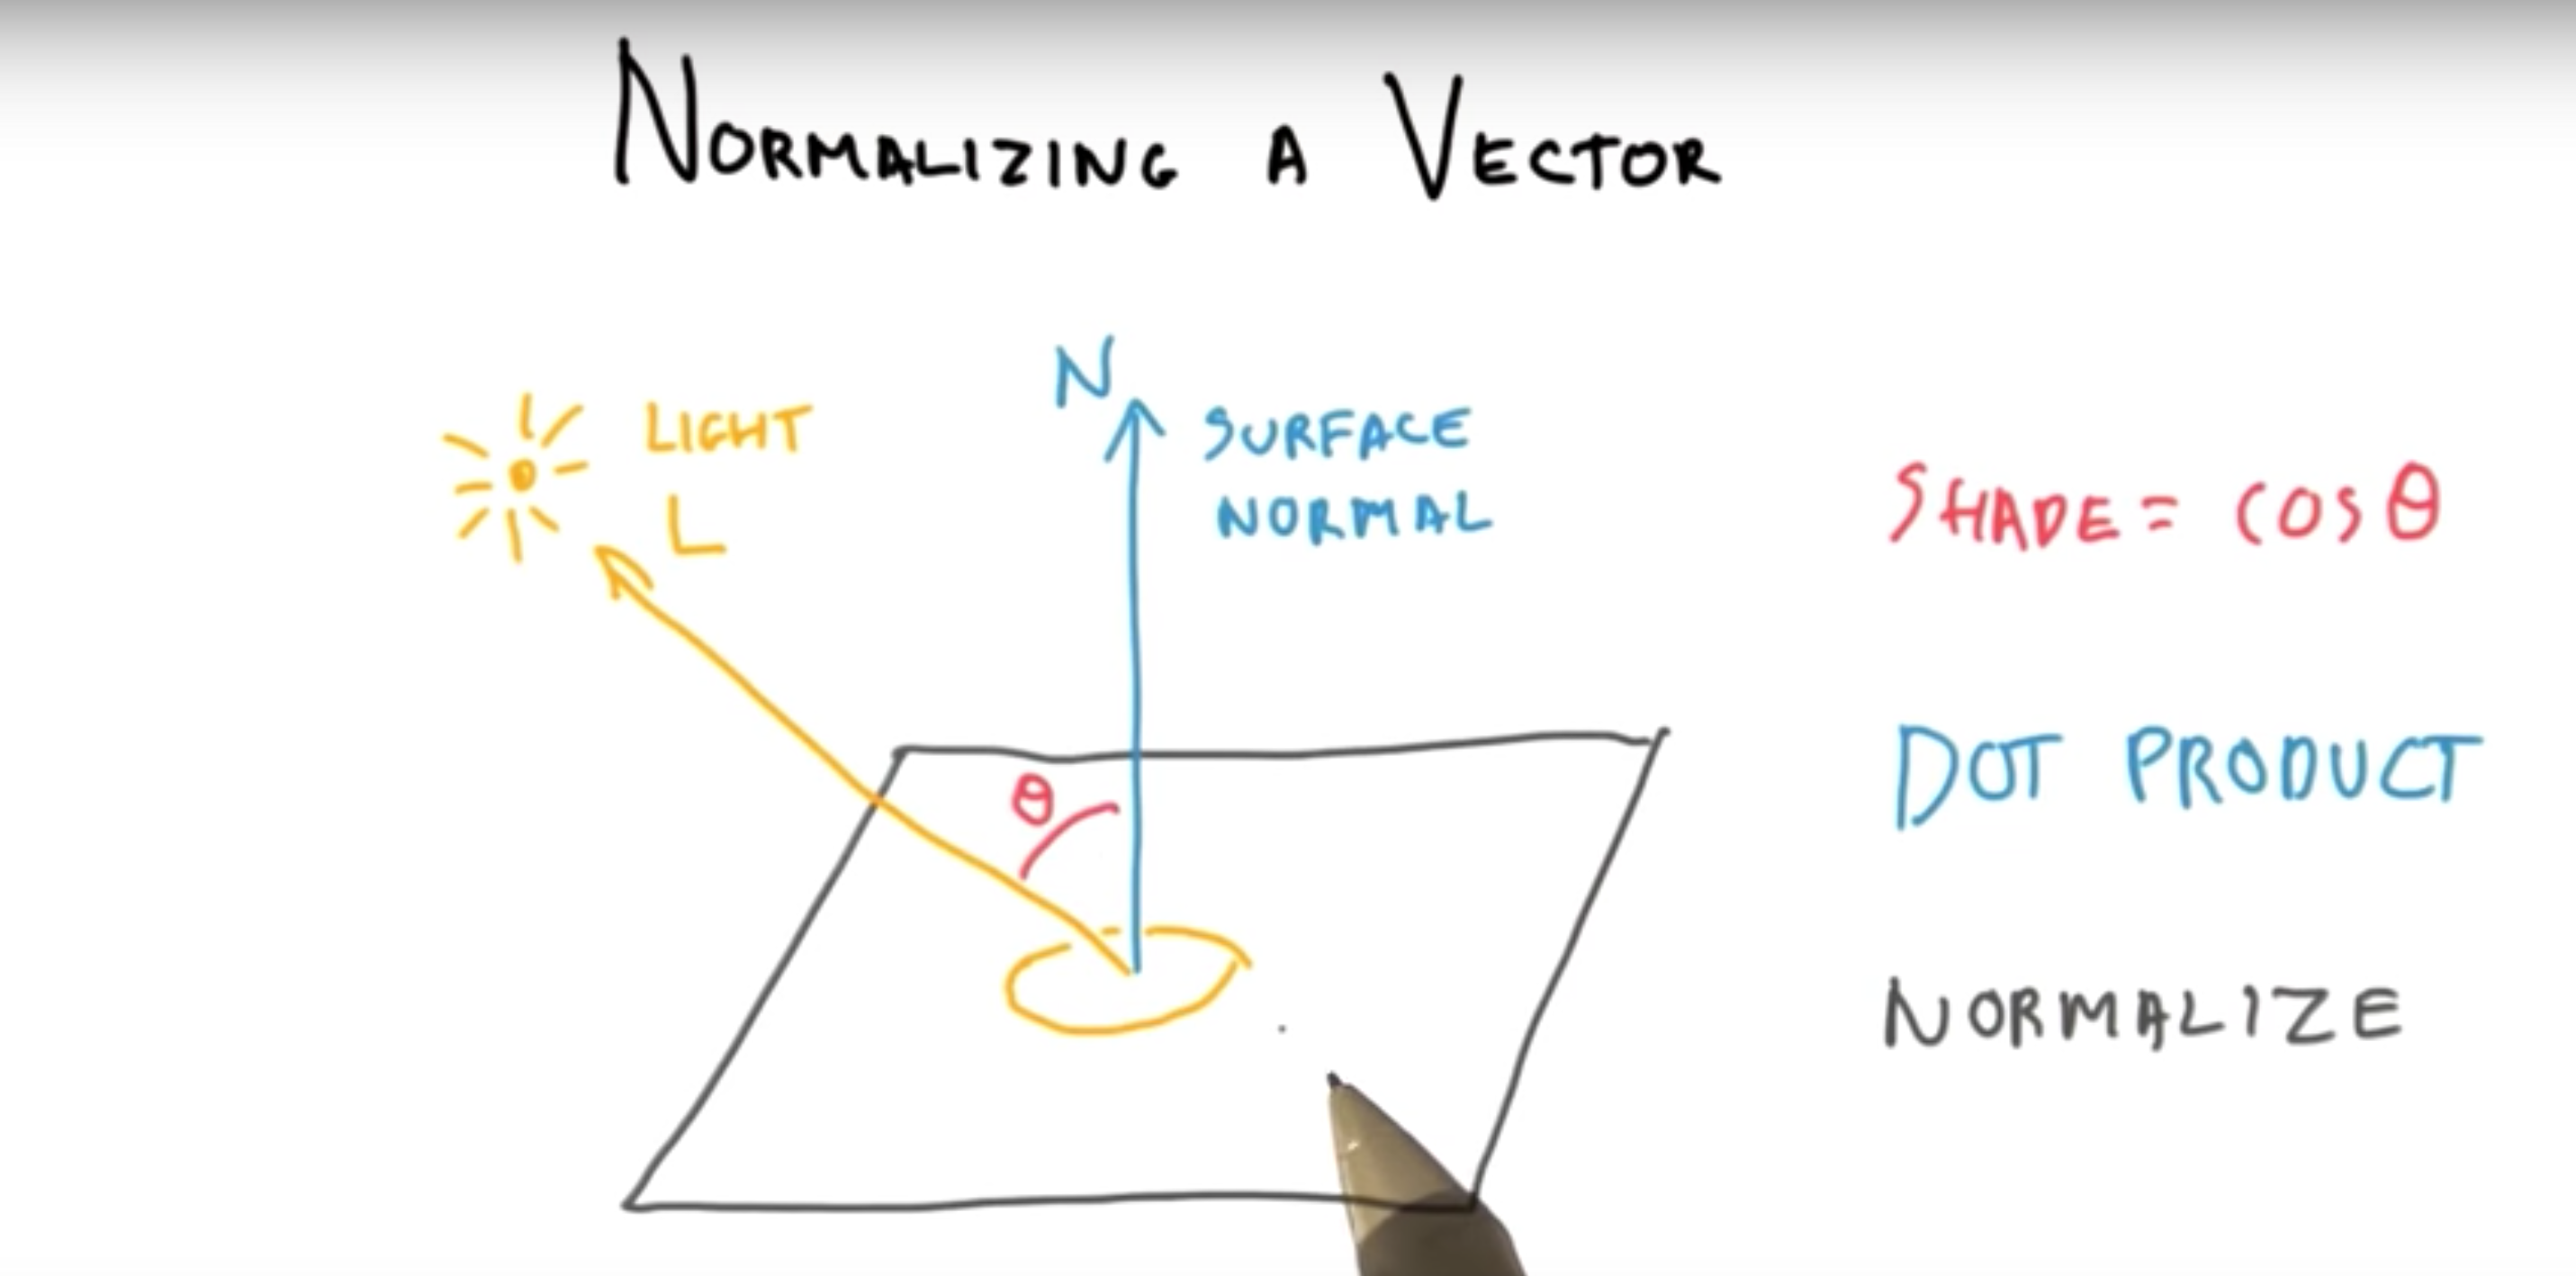 NORMALIZING A VECTOR
N
LIGHT
L
SURFACE
NORMAL
SHADE = COS θ
θ
DOT PRODUCT
NORMALIZE